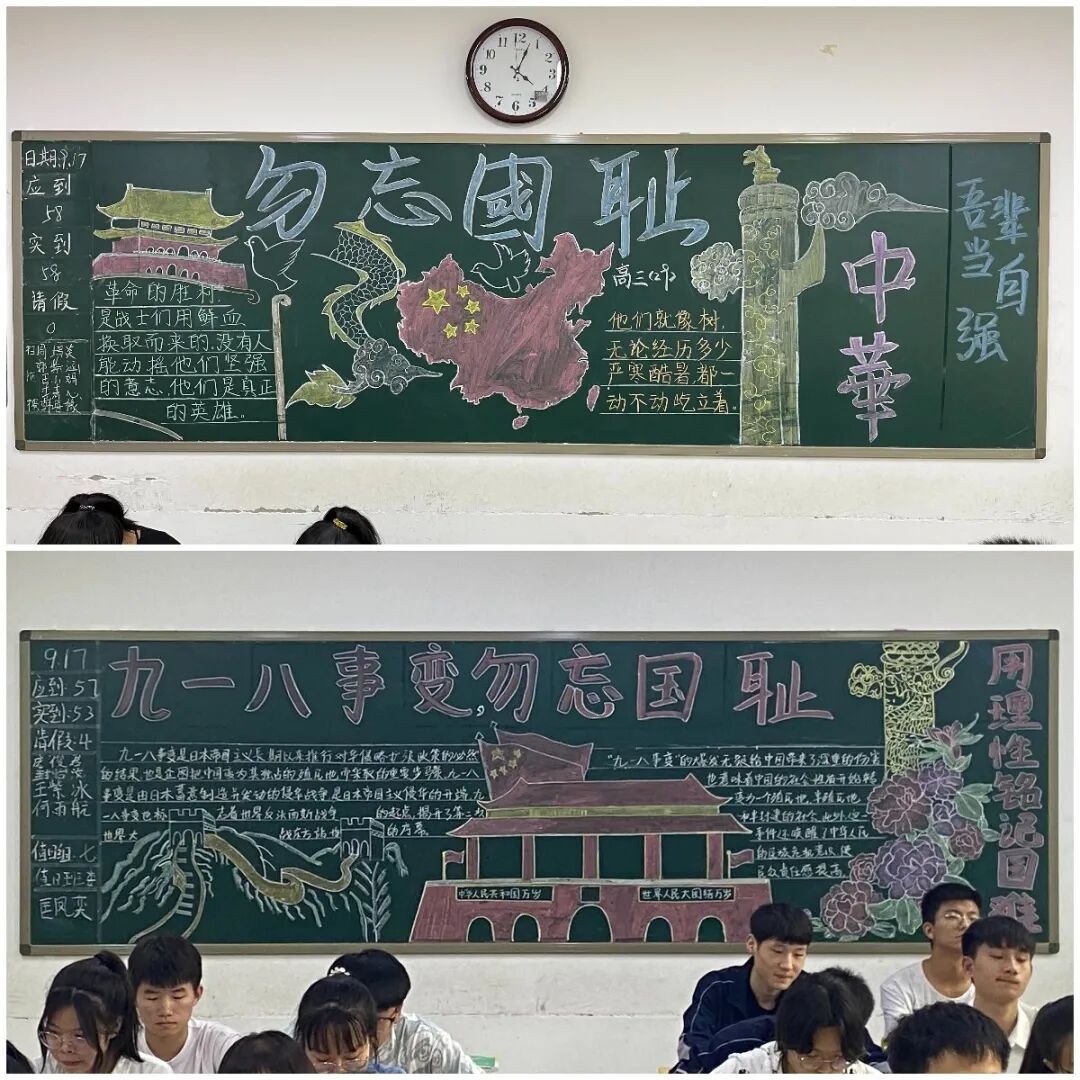 日期:9.17
应到
58
实到
58
请假
0
勿忘國耻
革命的胜利
是战士们用鲜血
换取而来的,没有人
能动摇他们坚强
的意志,他们是真正
的英雄。
高三(29)
他们就像树,
无论经历多少
严寒酷暑,都一
动不动屹立着。
中華
吾辈
当自
强
9.17
应到:57
实到:53
请假:4
何雨航
值日组:七
九一八事变,勿忘国耻
九一八事变是日本帝国主义长期以来推行对华侵略扩张政策的必然
的结果,也是企图把中国变为其独占的殖民地,而采取的重要步骤。九一八
事变是由日本蓄意制造并发动的侵华战争,是日本帝国主义侵华的开端。九
一八事变也标 志着世界反法西斯战争 的起点,揭开了第二次
世界大 战东方战场 的序幕。
"九一八事变"的爆发无疑给中国带来了深重的伤害
也意味着中国的社会性质开始转
变为一个殖民地,半殖民地,
半封建的社会,此外,这一
事件还唤醒了中华人民
的民族危机意识,使
民众责任感提高。
中华人民共和国万岁
世界人民大团结万岁
用理性铭记国难